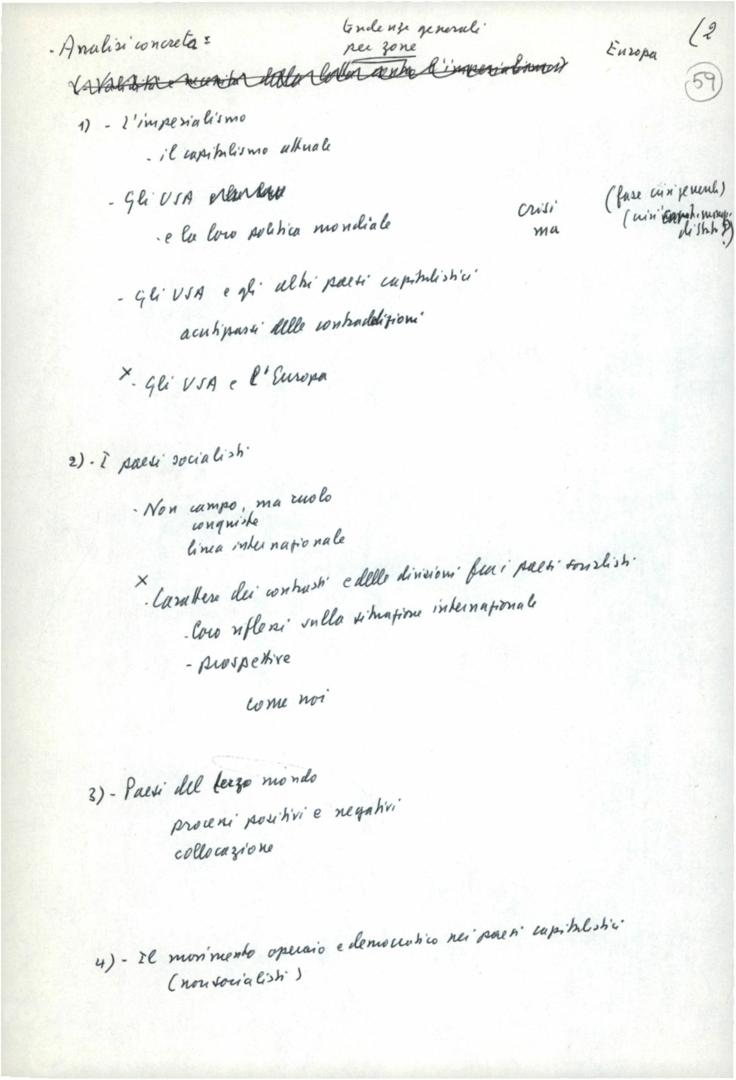 - Analisi concreta =
tendenze generali
per zone
Europa
(2
59
1) - L'imperialismo
- il capitalismo attuale
- Gli USA
- e la loro politica mondiale
crisi
ma
(fase
- Gli USA e gli altri paesi capitalistici
acutizzarsi delle contraddizioni
x - Gli USA e l'Europa
2) - I paesi socialisti
- Non campo, ma ruolo
conquiste
linea internazionale
x
- Carattere dei contrasti e delle divisioni fra i paesi socialisti
- Loro riflessi sulla situazione internazionale
- prospettive
come noi
3) - Paesi del terzo mondo
processi positivi e negativi
collocazione
4) - Il movimento operaio e democratico nei paesi capitalistici
(non socialisti)